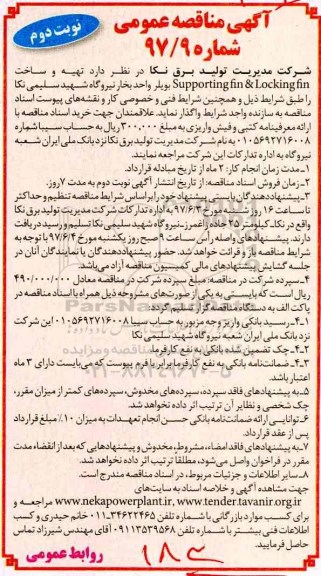 آگهی مناقصه عمومی
شماره ۹۷/۹
نوبت دوم
شرکت مدیریت تولید برق نکا در نظر دارد تهیه و ساخت
Supporting fin & Locking fin بویلر واحد بخار نیروگاه شهید سلیمی نکا
را طبق شرایط ذیل و همچنین شرایط فنی و خصوصی کار و نقشه‌های پیوست اسناد
مناقصه به سازنده واجد شرایط واگذار نماید. علاقمندان جهت خرید اسناد مناقصه با
ارائه معرفینامه کتبی و فیش واریزی به مبلغ ۳۰۰,۰۰۰ ریال به حساب سیبا شماره
۰۱۰۵۶۹۲۷۱۶۰۰۸ به نام شرکت مدیریت تولید برق نکا نزد بانک ملی ایران شعبه
نیروگاه به اداره تدارکات این شرکت مراجعه نمایند.
۱-مدت زمان انجام کار: ۲ ماه از تاریخ مبادله قرارداد.
۲-زمان فروش اسناد مناقصه: از تاریخ انتشار آگهی نوبت دوم به مدت ۷ روز.
۳-پیشنهاددهندگان باید پیشنهاد خود را بر اساس شرایط مناقصه تنظیم و حداکثر
تا ساعت ۱۶ روز شنبه مورخ ۹۷/۶/۳ به اداره تدارکات شرکت مدیریت تولید برق نکا
واقع در نکا، کیلومتر ۲۵ جاده زاغمرز-نیروگاه شهید سلیمی نکا تسلیم و رسید دریافت
دارند. پیشنهادهای واصله رأس ساعت ۹ صبح روز یکشنبه مورخ ۹۷/۶/۴ با توجه به
شرایط مناقصه باز و قرائت خواهد شد. حضور پیشنهاددهندگان یا نمایندگان آنان در
جلسه گشایش پیشنهادهای مالی کمیسیون مناقصه آزاد می‌باشد.
۴-سپرده شرکت در مناقصه: مبلغ سپرده شرکت در مناقصه معادل ۴۹۰/۰۰۰/۰۰۰
ریال است که بایستی به یکی از صورت‌های مشروحه ذیل همراه با اسناد مناقصه در
پاکت الف به دستگاه مناقصه گزار تسلیم گردد.
۴-۱-رسید بانکی واریز وجه مزبور به حساب سیبا ۰۱۰۵۶۹۲۷۱۶۰۰۸ این شرکت
نزد بانک ملی ایران شعبه نیروگاه شهید سلیمی نکا
۴-۲-چک تضمین شده بانکی به نفع کارفرما.
۴-۳-ضمانت‌نامه بانکی به نفع کارفرما برابر با فرم پیوست که می‌بایست دارای ۳ ماه
اعتبار باشد.
۵-به پیشنهادهای فاقد سپرده، سپرده‌های مخدوش، سپرده‌های کمتر از میزان مقرر،
چک شخصی و نظایر آن ترتیب اثر داده نخواهد شد.
۶-توانایی ارائه ضمانت‌نامه بانکی حسن انجام تعهدات به میزان ۱۰٪ مبلغ قرارداد
پس از عقد قرارداد.
۷-به پیشنهادهای فاقد امضاء، مشروط، مخدوش و پیشنهادهایی که بعد از انقضاء مدت
مقرر در فراخوان واصل می‌شود، مطلقاً ترتیب اثر داده نخواهد شد.
۸-سایر اطلاعات و جزئیات مربوط، در اسناد مناقصه مندرج است.
جهت مشاهده آگهی و خلاصه اسناد به سایت‌های
www.nekapowerplant.ir, www.tender.tavanir.org.ir مراجعه و
برای کسب موارد بازرگانی با شماره تلفن ۳۴۶۲۲۴۶۵-۰۱۱ خانم حیدری و کسب
اطلاعات فنی بیشتر با شماره تلفن ۰۹۱۱۳۵۳۹۵۶۸ آقای مهندس شیرزاد تماس
حاصل فرمایید.
روابط عمومی